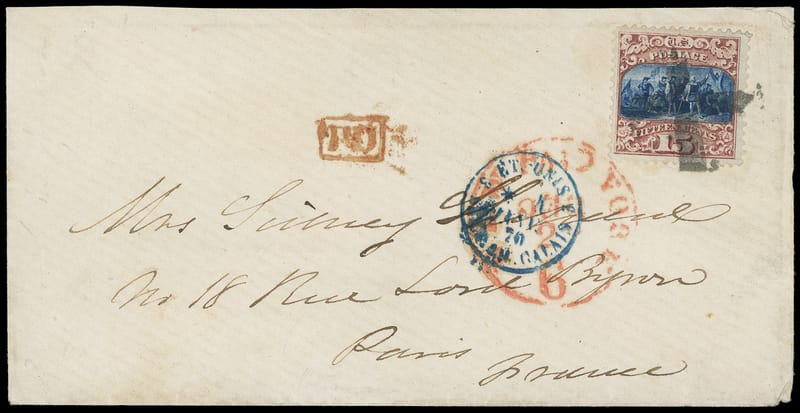 U.S.
POSTAGE
FIFTEEN CENTS
15
PD
ÉT. UNIS
4
JANV.
70
AM. CALAIS
6
Mrs Sidney
No 18 Rue Lord Byron
Paris
France